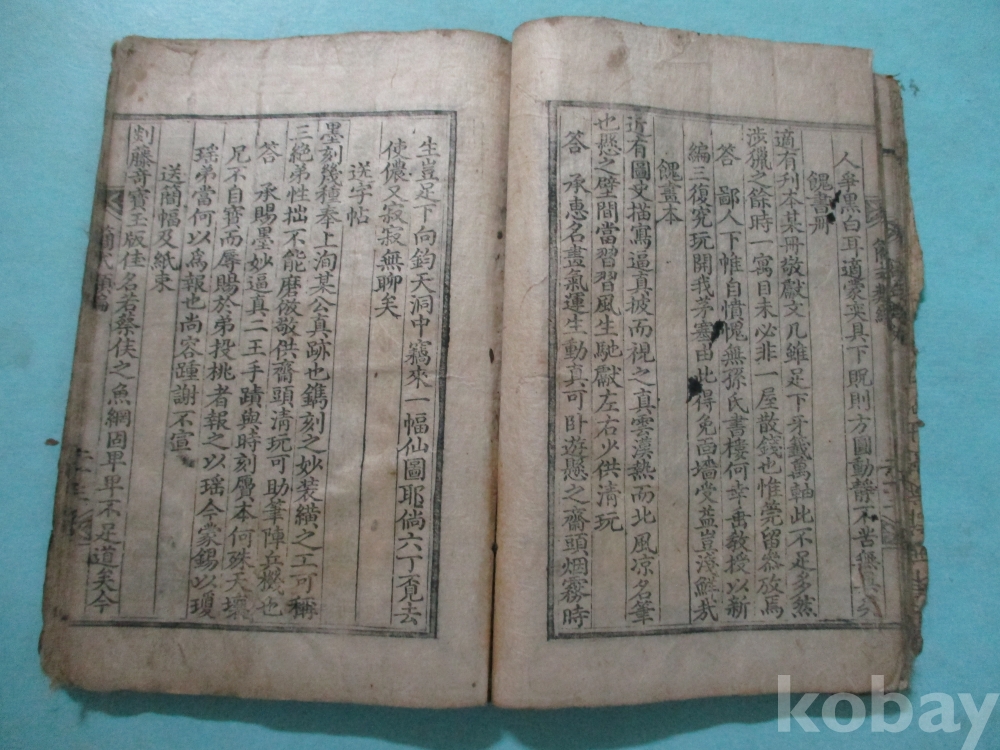 人爭黑白耳適蒙奕具下貺則方圓動靜不苦無
餽書册
適有刊本某冊敬獻文几雖足下牙籤萬軸此不足多然
涉獵之餘時一寓目未必非一屋散錢也惟莞留叅攷焉
答 鄙人下帷自憤愧無孫氏書樓何幸垂敎授以新
編三復究玩開我茅塞由此得免面墻受益豈淺鮮哉
餽畫本
近有圖史描寫逼真披而視之真雲漢熱而北風凉名筆
也懸之壁間當習習風生馳獻左右少供清玩
答 承惠名畫氣運生動真可卧遊懸之齋頭烟霧時
生豈足下向鈞天洞中竊來一幅仙圖耶倘六丁覔去
使儂又寂寂無聊矣
送字帖
墨刻幾種奉上洵某公真跡也鐫刻之妙装縯之工可稱
三絶弟性拙不能磨倣敬供齋頭清玩可助筆陣兵機也
答 承賜墨妙逼真二王手蹟與時刻贋本何殊天壤
兄不自寶而辱賜於弟投桃者報之以瑶今蒙錫以瓊
瑶弟當何以爲報也尚容踵謝不宣
送簡幅及紙柬
剡藤奇寶玉版佳名若蔡侯之魚網固卑卑不足道矣今
簡式類編